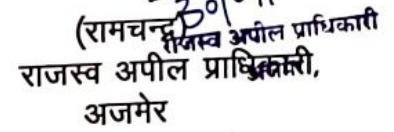 (रामचन्द्र)
राजस्व अपील प्राधिकारी
राजस्व अपील प्राधिकारी,
अजमेर